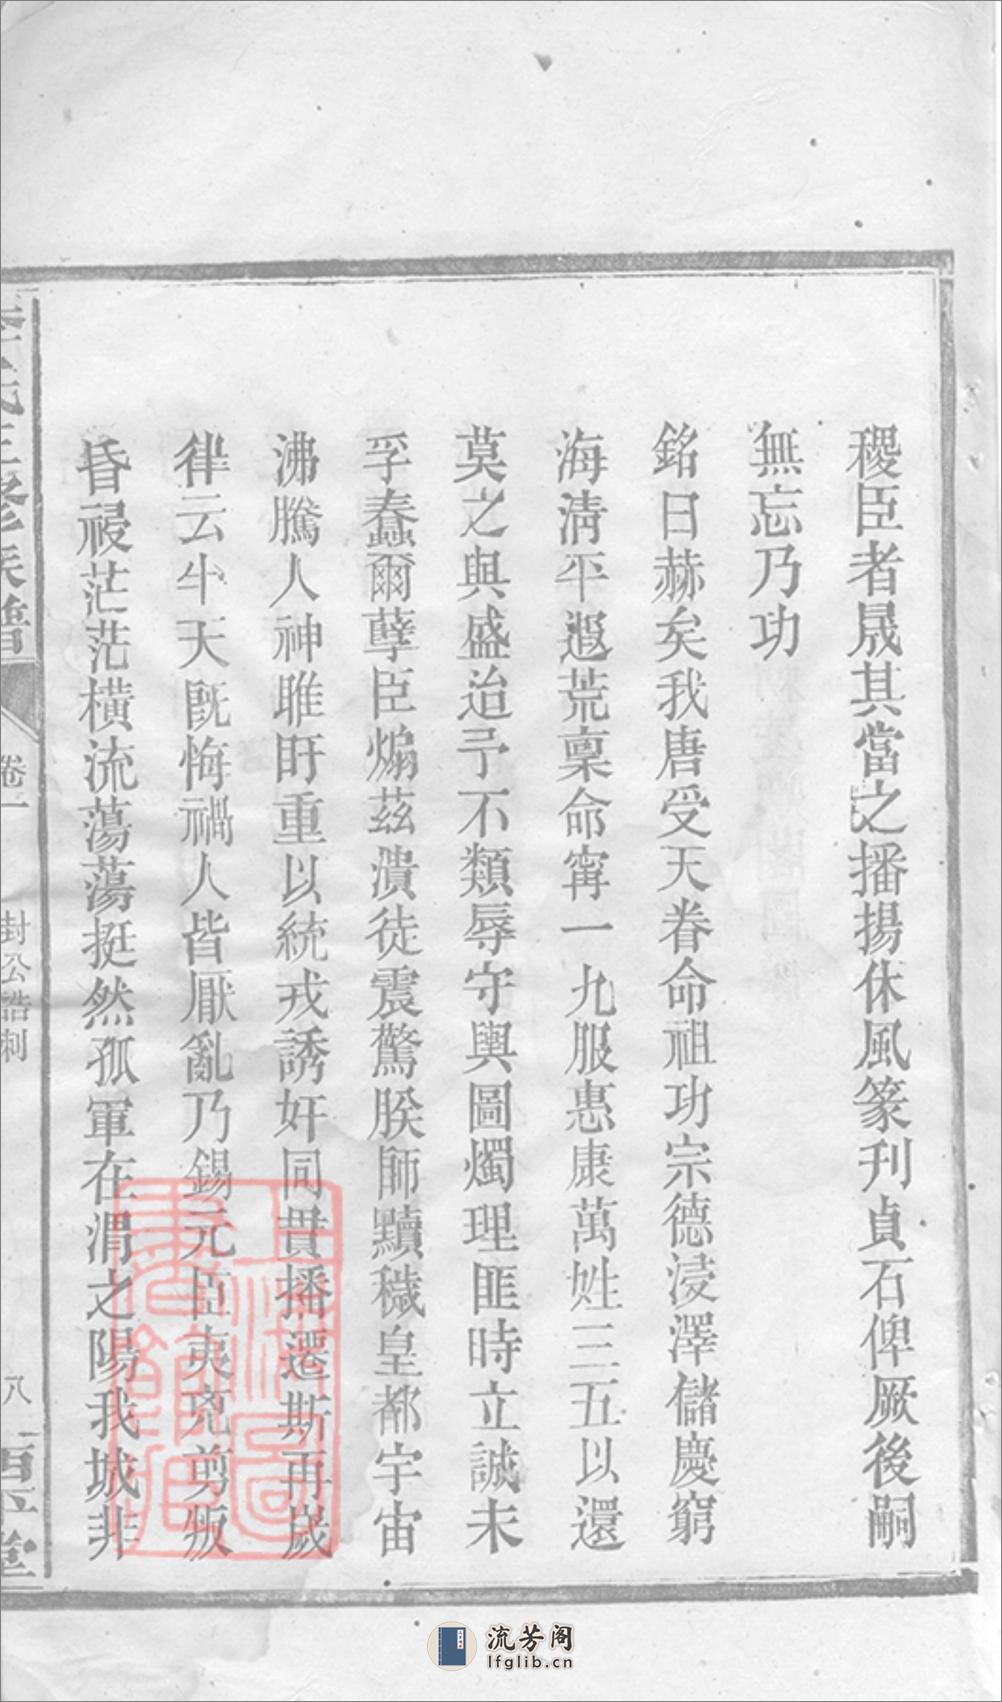 稷臣者晟其當之播揚休風篆刊貞石俾厥後嗣
無忘乃功
銘曰赫矣我唐受天眷命祖功宗德浸澤儲慶窮
海清平遐荒稟命甯一九服惠康萬姓三五以還
莫之與盛迨予不類辱守輿圖燭理匪時立誠未
孚蠢爾孽臣煽茲潰徒震驚朕師黷穢皇都宇宙
沸騰人神睢盱重以統戎誘奸同貫播遷斯再歲
律云半天既悔禍人皆厭亂乃錫元臣夷兇剪叛
昏祲茫茫橫流蕩蕩挺然孤軍在渭之陽我城非
李氏三修族譜
卷一
封公誥制
八
西平堂
上海圖書館藏
流芳阁
lfglib.cn